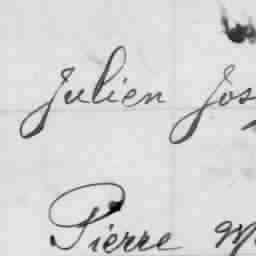 Julien Jos
Pierre M